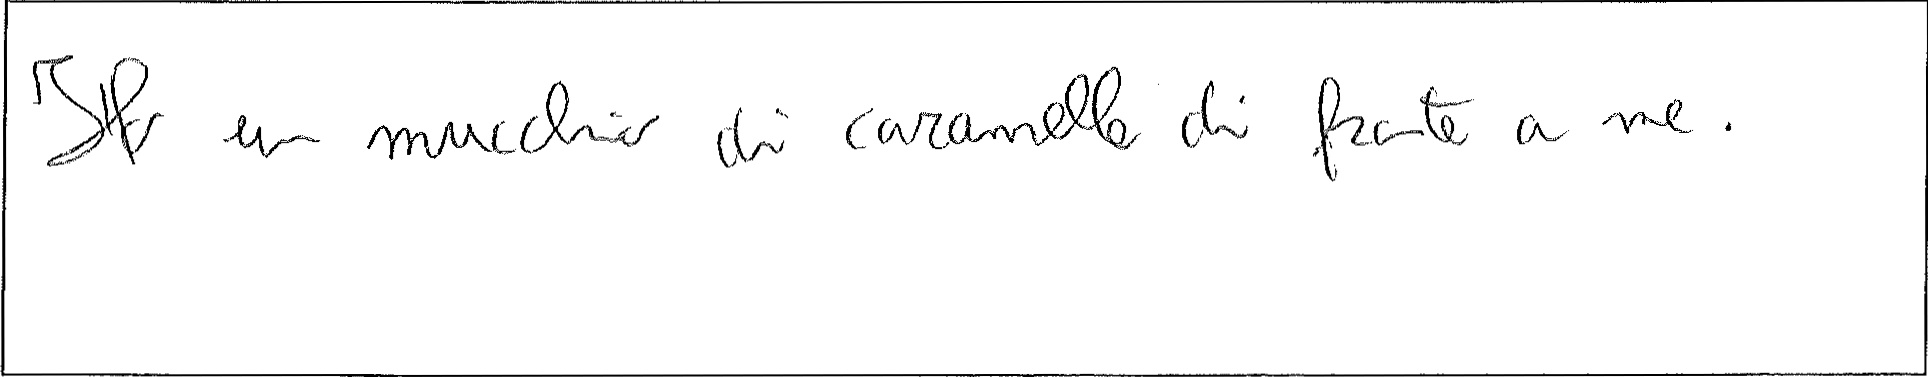 Ho un mucchio di caramelle di fronte a me.